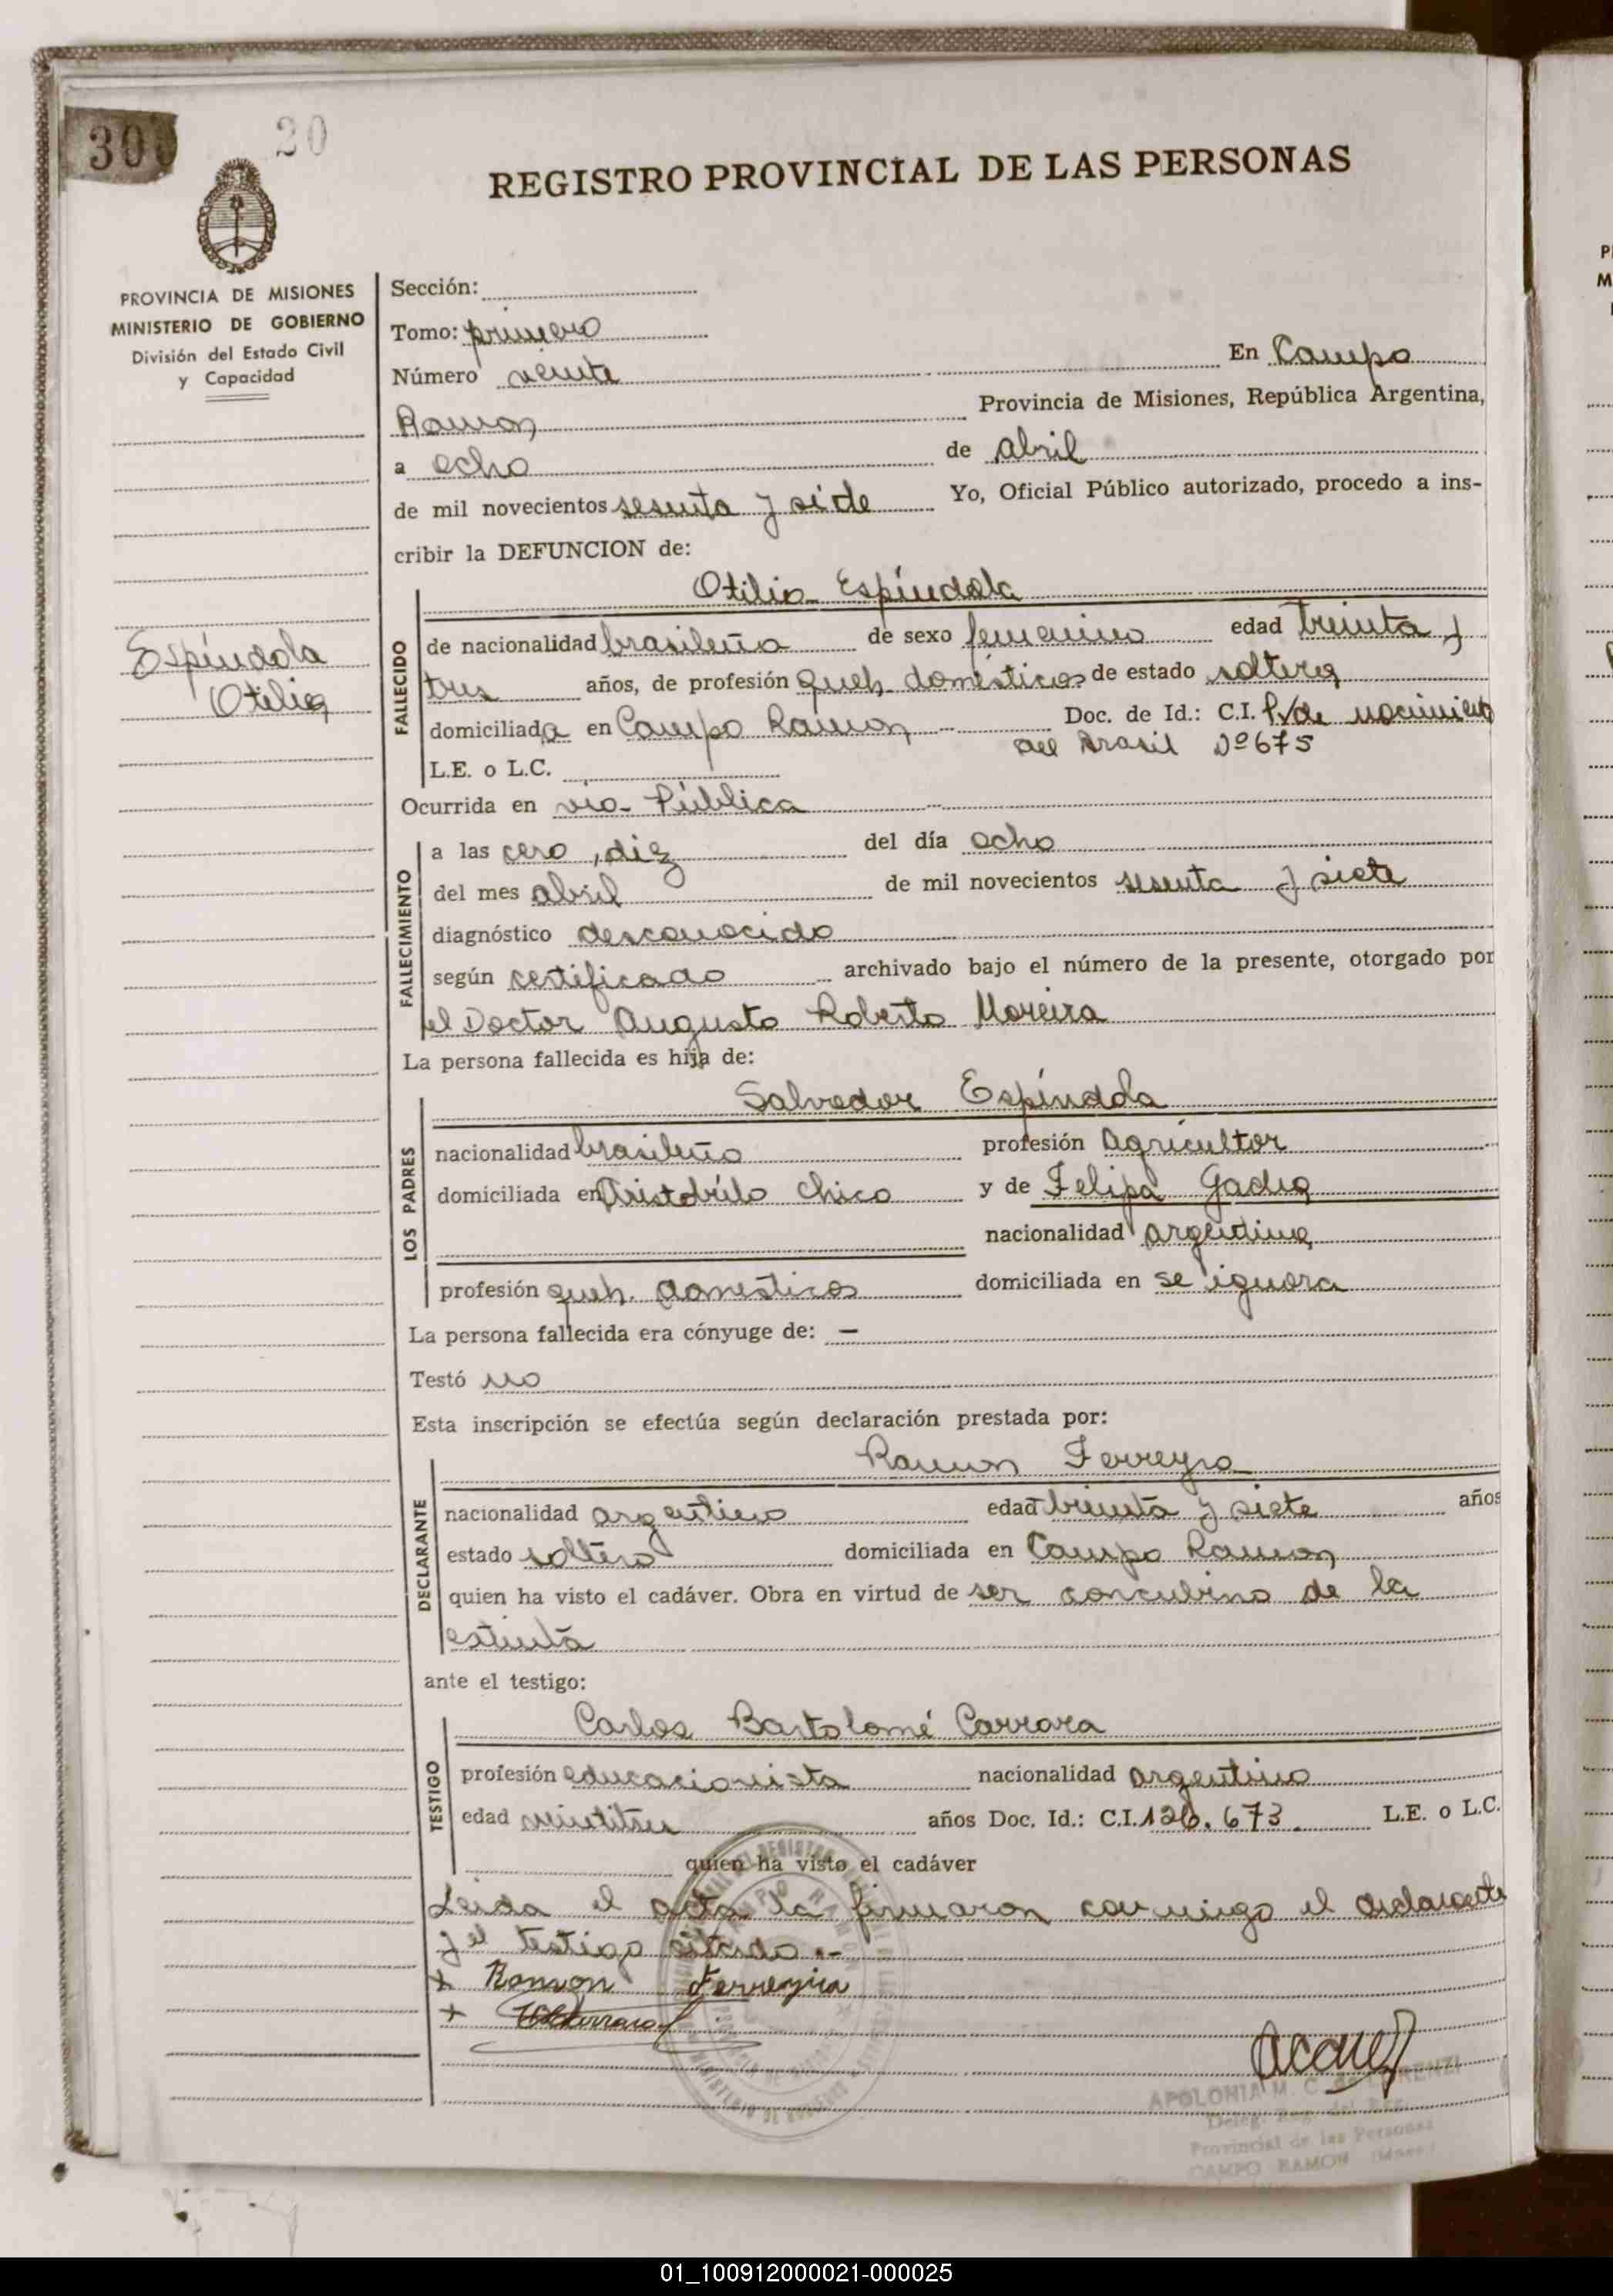 300
20
REGISTRO PROVINCIAL DE LAS PERSONAS
PROVINCIA DE MISIONES
MINISTERIO DE GOBIERNO
División del Estado Civil
y Capacidad
Espíndola
Otilia
Sección:
Tomo: primero
Número veinte En Campo
Ramon Provincia de Misiones, República Argentina,
a ocho de abril
de mil novecientos sesenta y siete Yo, Oficial Público autorizado, procedo a ins-
cribir la DEFUNCION de:
FALLECIDO
Otilia Espíndola
de nacionalidad brasileña de sexo femenino edad treinta y
tres años, de profesión queh. domésticos de estado soltera
domiciliada en Campo Ramon Doc. de Id.: C.I. P/de nacimiento
del Brasil Nº 675
L.E. o L.C.
Ocurrida en via Pública
FALLECIMIENTO
a las cero, diez del día ocho
del mes abril de mil novecientos sesenta y siete
diagnóstico desconocido
según certificado archivado bajo el número de la presente, otorgado por
el Doctor Augusto Roberto Moreira
La persona fallecida es hija de:
LOS PADRES
Salvador Espíndola
nacionalidad brasileño profesión agricultor
domiciliada en Aristóbulo Chico y de Felipa Gadea
nacionalidad argentina
profesión queh. domesticos domiciliada en se ignora
La persona fallecida era cónyuge de: —
Testó no
Esta inscripción se efectúa según declaración prestada por:
DECLARANTE
Ramon Ferreyra
nacionalidad argentino edad treinta y siete años
estado soltero domiciliada en Campo Ramon
quien ha visto el cadáver. Obra en virtud de ser concubino de la
extinta
ante el testigo:
TESTIGO
Carlos Bartolomé Carrara
profesión educacionista nacionalidad argentino
edad veintitres años Doc. Id.: C.I. 126.673. L.E. o L.C.
quien ha visto el cadáver
Leida el acta la firmaron conmigo el declarante
y el testigo citado.-
x Ramon Ferreyra
x
APOLONIA M. C. de LORENZI
Provincial de las Personas
CAMPO RAMON
01_100912000021-000025